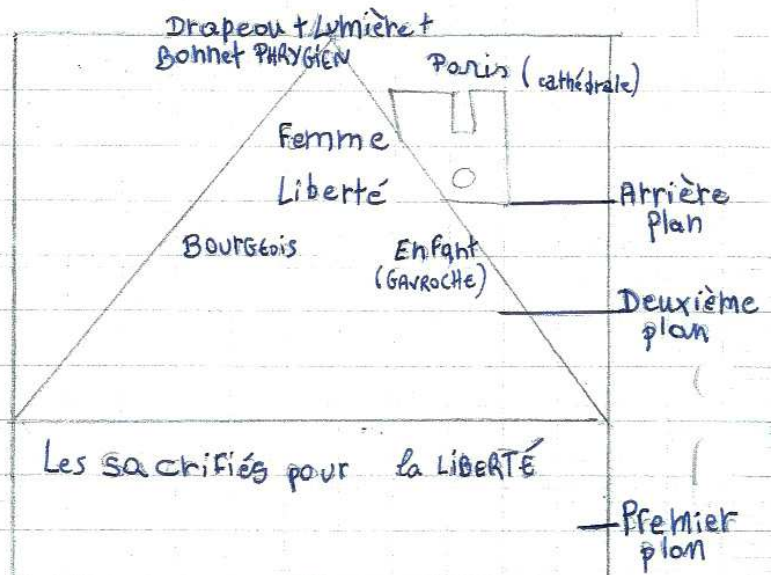 Drapeau + Lumière +
Bonnet PHRYGIEN
Paris (cathédrale)
Femme
Liberté
Arrière
plan
Bourgeois
Enfant
(GAVROCHE)
Deuxième
plan
Les sacrifiés pour la LIBERTÉ
Premier
plan